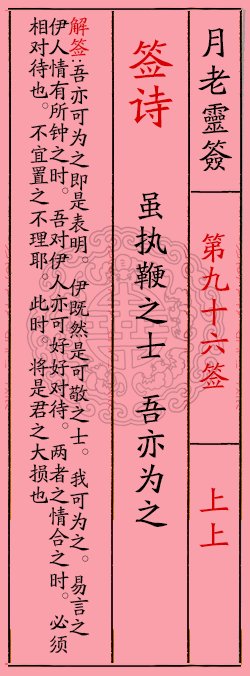 月老靈簽
第九十六签
上上
签诗
虽执鞭之士 吾亦为之
解签:吾亦可为之即是表明。伊既然是可敬之士。我可为之。易言之
伊人情有所钟之时。吾对伊人亦可好好对待。两者之情合之时。必须
相对待也。不宜置之不理耶。此时 将是君之大损也